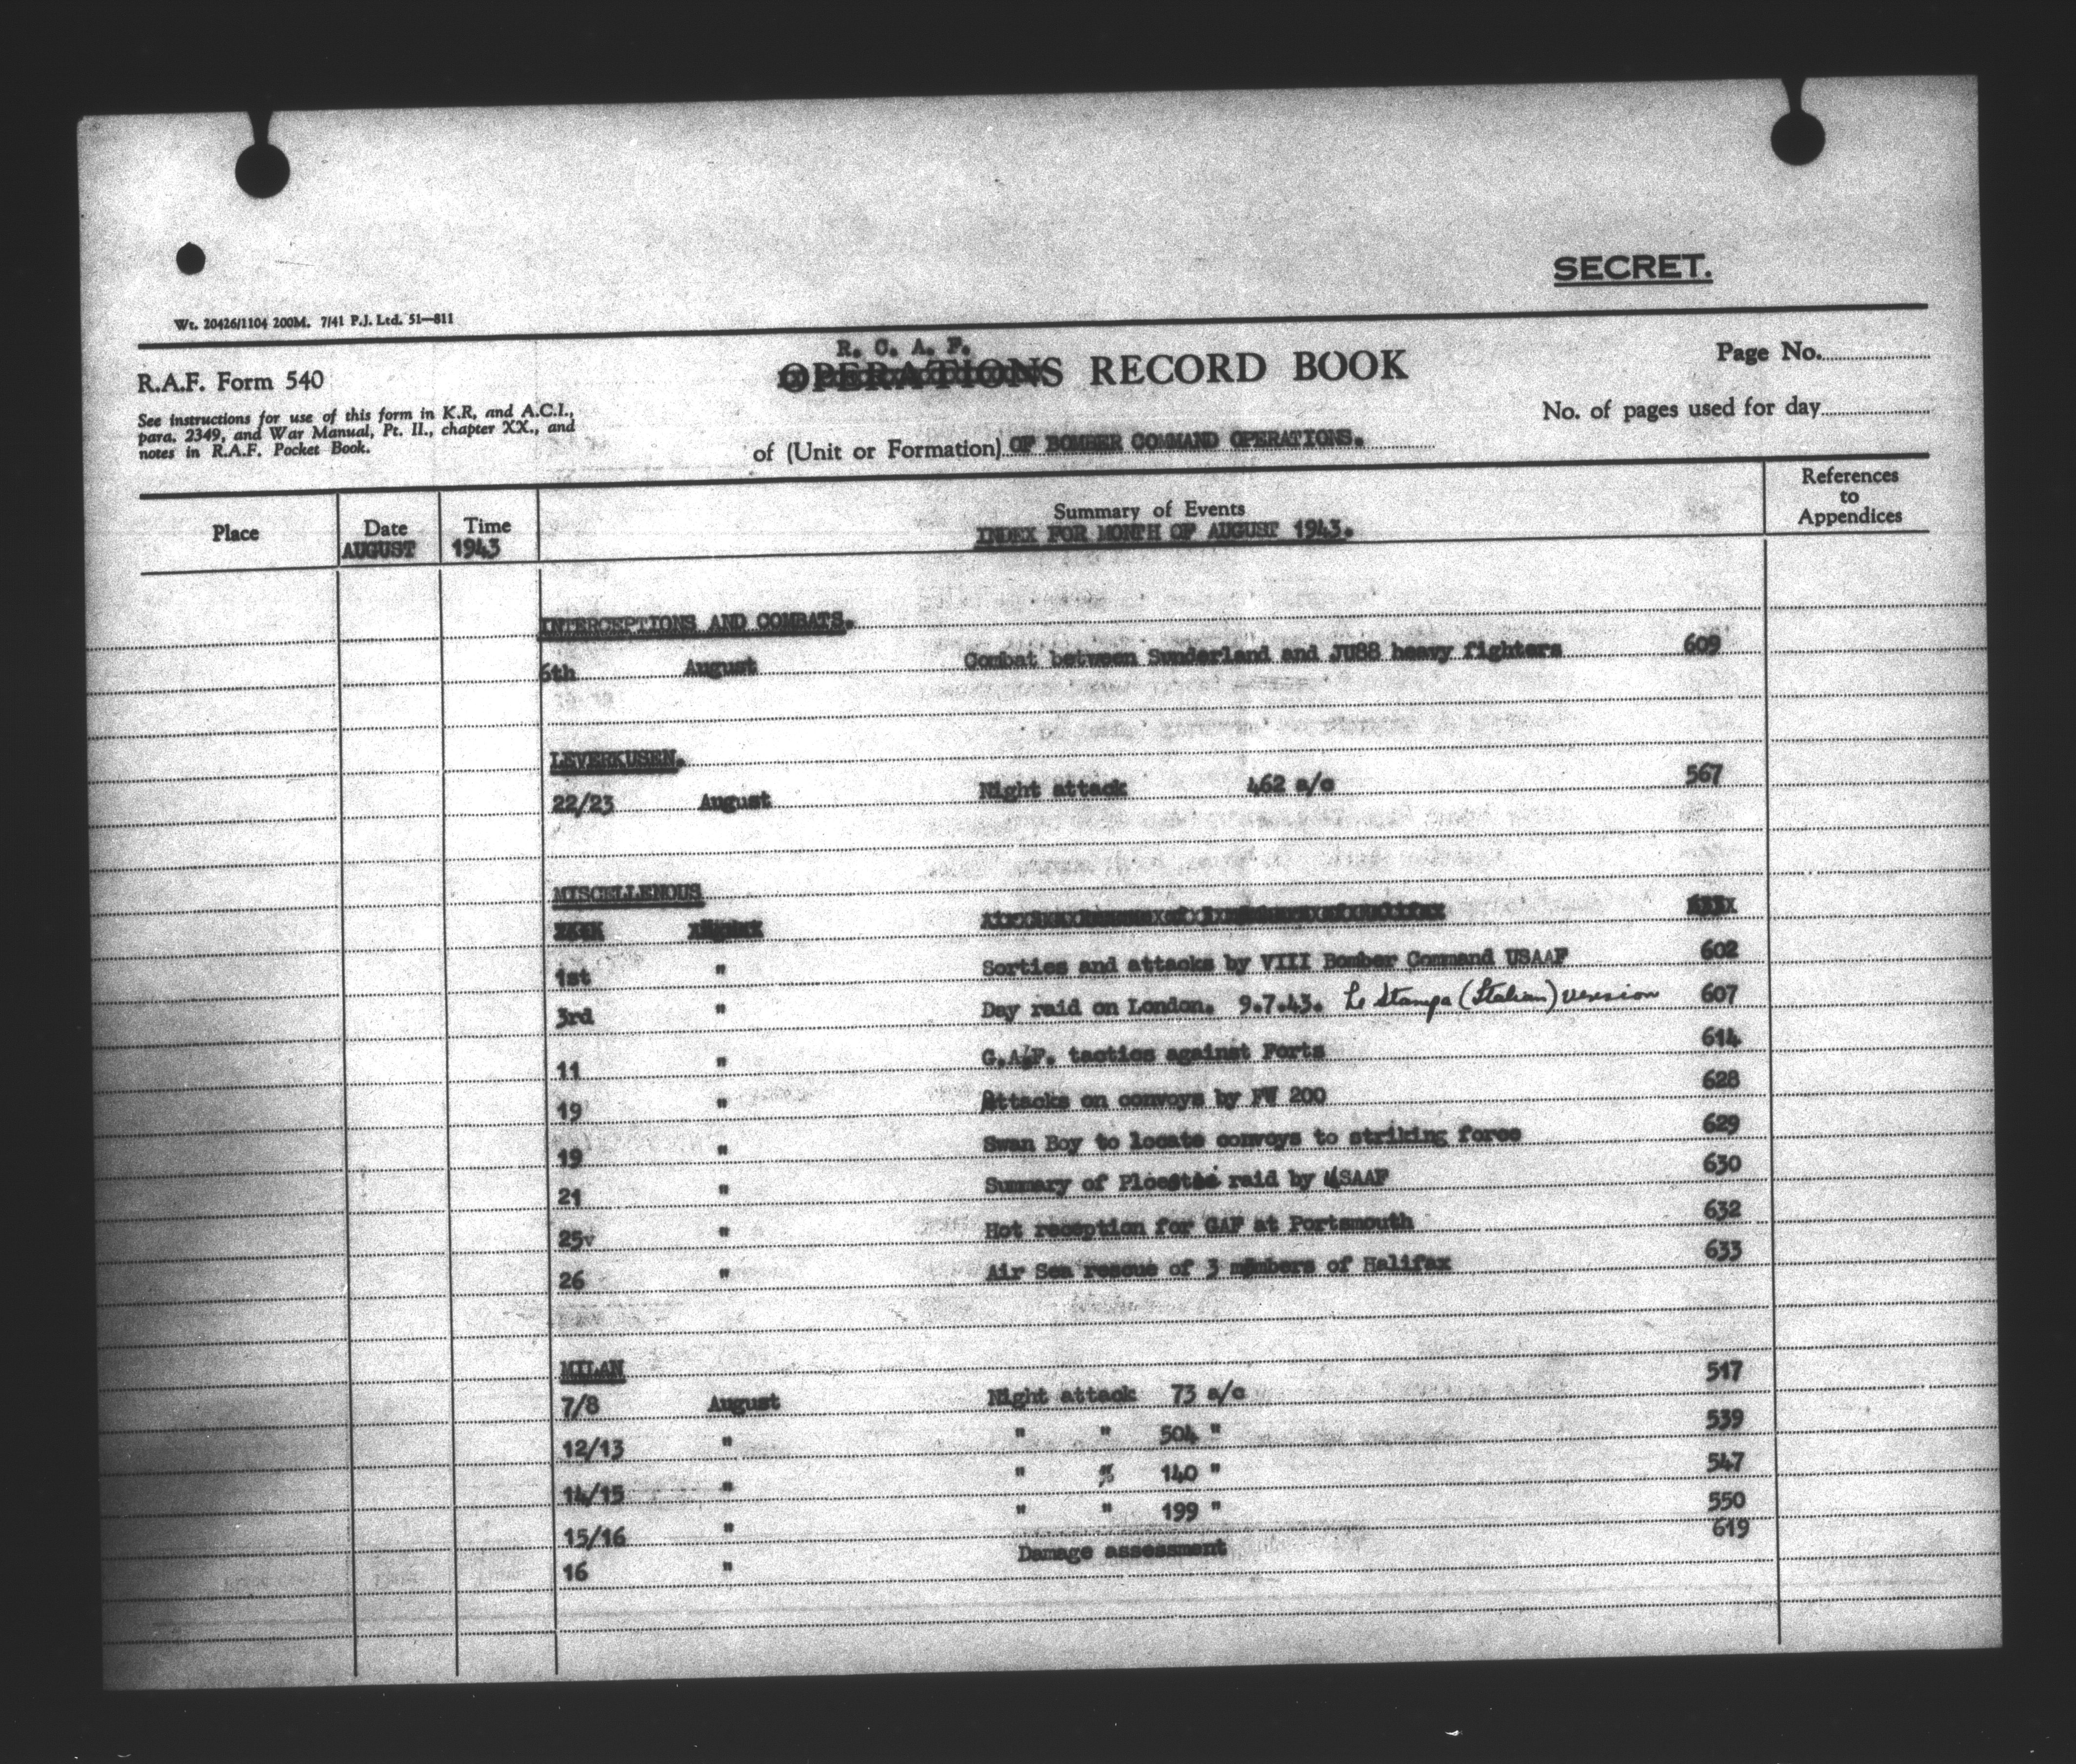 SECRET.
Wt. 20426/1104 200M. 7/41 P.J. Ltd. 51—811
R. C. A. F.
R.A.F. Form 540
OPERATIONS RECORD BOOK
Page No.
See instructions for use of this form in K.R, and A.C.I.,
para. 2349, and War Manual, Pt. II., chapter XX., and
notes in R.A.F. Pocket Book.
No. of pages used for day
of (Unit or Formation) OF BOMBER COMMAND OPERATIONS.
Place Date Time Summary of Events References to Appendices
AUGUST 1943 INDEX FOR MONTH OF AUGUST 1943.
INTERCEPTIONS AND COMBATS.
6th August Combat between Sunderland and JU88 heavy fighters 609
LEVERKUSEN.
22/23 August Night attack 462 a/c 567
MISCELLENOUS
August
1st " Sorties and attacks by VIII Bomber Command USAAF 602
3rd " Day raid on London. 9.7.43. Le Stampa (Italian) version 607
11 " G.A.F. tactics against Forts 614
19 " Attacks on convoys by FW 200 628
19 " Swan Boy to locate convoys to striking force 629
21 " Summary of Ploesti raid by USAAF 630
25 " Hot reception for GAF at Portsmouth 632
26 " Air Sea rescue of 3 members of Halifax 633
MILAN
7/8 August Night attack 73 a/c 517
12/13 " " " 504 " 539
14/15 " " " 140 " 547
15/16 " " " 199 " 550
16 " Damage assessment 619